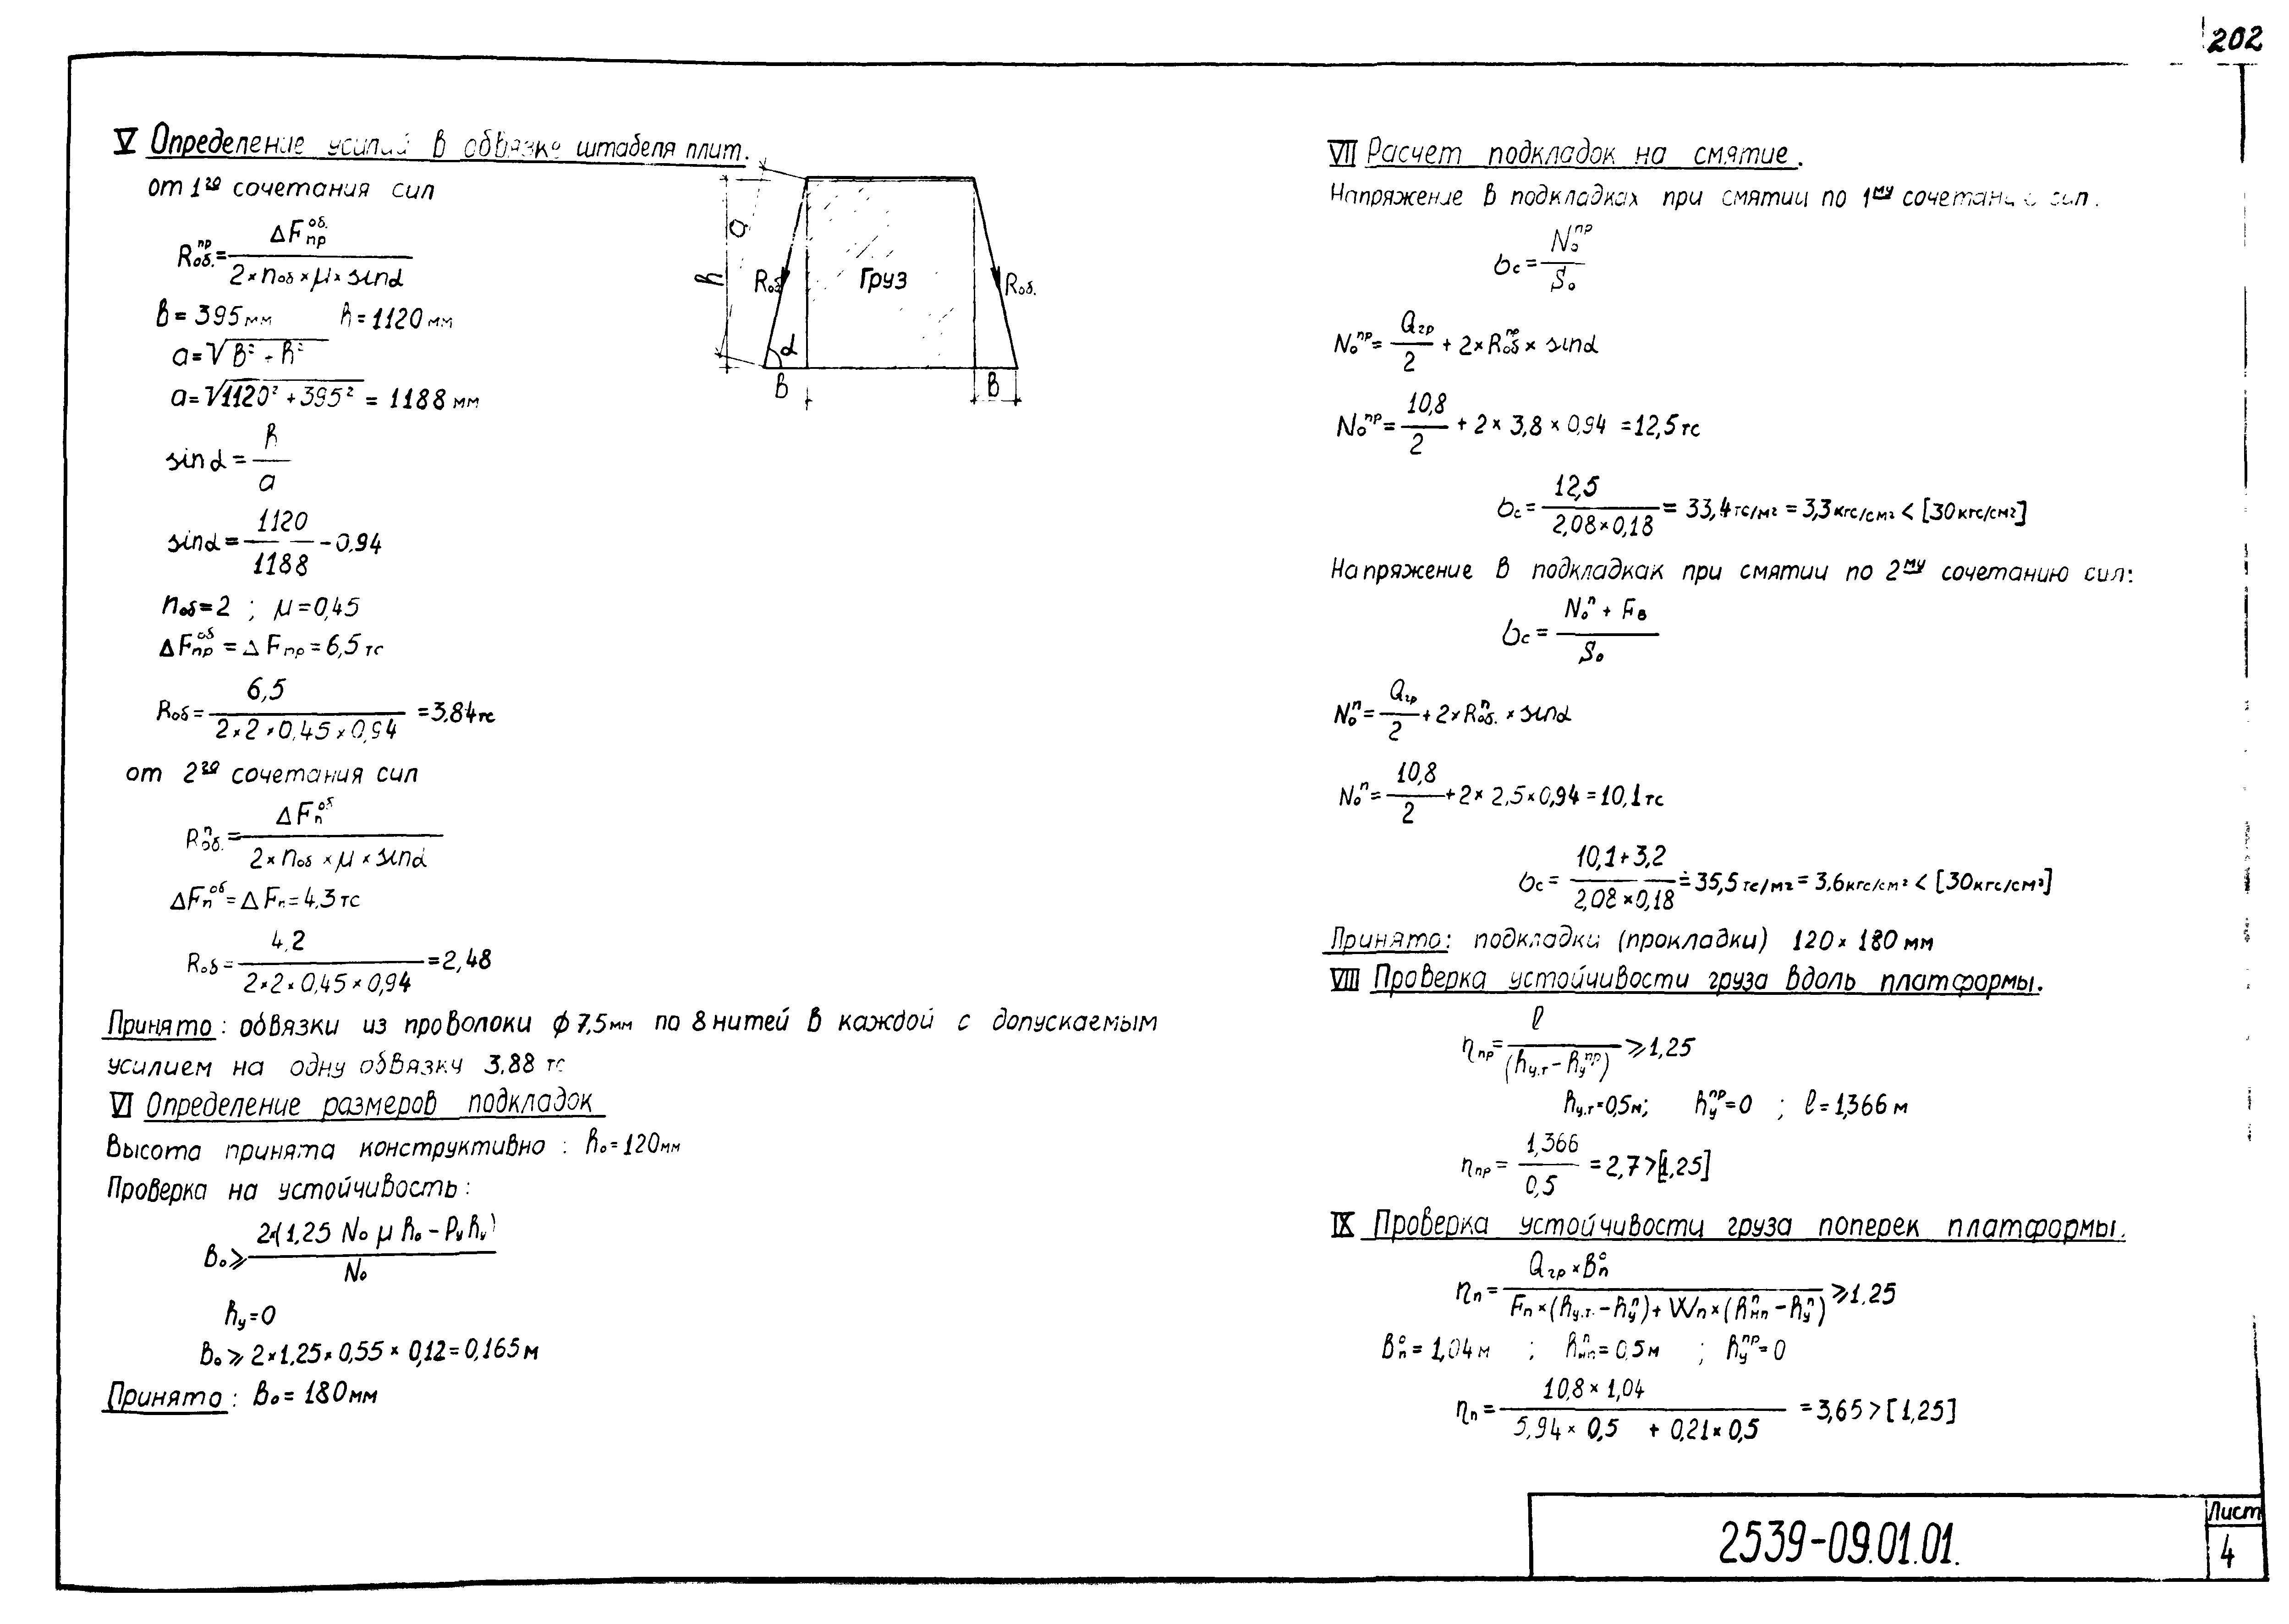 202
V Определение усилий в обвязке штабеля плит.
от 1го сочетания сил
Rоб.пр = ΔFпроб. / 2×nоб×μ×sinα
в = 395мм h = 1120мм
a = √в² + h²
a = √1120² + 395² = 1188 мм
sinα = h / a
sinα = 1120 / 1188 - 0,94
nоб = 2 ; μ = 0,45
ΔFпроб = ΔFпр = 6,5 тс
Rоб = 6,5 / 2×2×0,45×0,94 = 3,84тс
от 2го сочетания сил
Rоб.п = ΔFпоб / 2×nоб×μ×sinα
ΔFпоб = ΔFп = 4,3 тс
Rоб = 4,2 / 2×2×0,45×0,94 = 2,48
Принято: обвязки из проволоки ϕ 7,5мм по 8 нитей в каждой с допускаемым
усилием на одну обвязку 3,88 тс
VI Определение размеров подкладок
Высота принята конструктивно : h₀ = 120мм
Проверка на устойчивость:
в₀ ≥ 2×(1,25 N₀ μ h₀ - Pу hу) / N₀
hу = 0
в₀ ≥ 2×1,25×0,55×0,12 = 0,165м
Принято: в₀ = 180мм
a
h
Rоб
Груз
Rоб.
α
в
в
VII Расчет подкладок на смятие.
Напряжение в подкладках при смятии по 1му сочетанию сил.
σс = N₀пр / S₀
N₀пр = Qгр / 2 + 2×Rобпр × sinα
N₀пр = 10,8 / 2 + 2×3,8×0,94 = 12,5тс
σс = 12,5 / 2,08×0,18 = 33,4тс/м² = 3,3кгс/см² < [30кгс/см²]
Напряжение в подкладкак при смятии по 2му сочетанию сил:
σс = N₀п + Fв / S₀
N₀п = Qгр / 2 + 2×Rоб.п × sinα
N₀п = 10,8 / 2 + 2×2,5×0,94 = 10,1тс
σс = 10,1+3,2 / 2,08×0,18 = 35,5тс/м² = 3,6кгс/см² < [30кгс/см²]
Принято: подкладки (прокладки) 120×180мм
VIII Проверка устойчивости груза вдоль платформы.
ηпр = l / (hу.т - hупр) ≥ 1,25
hу.т = 0,5м; hупр = 0 ; l = 1,366 м
ηпр = 1,366 / 0,5 = 2,7 > [1,25]
IX Проверка устойчивости груза поперек платформы.
ηп = Qгр × Вп° / Fп×(hу.т. - hуп) + Wп×(hнпп - hуп) ≥ 1,25
Вп° = 1,04м ; hнпп = 0,5м ; hупр = 0
ηп = 10,8×1,04 / 5,94×0,5 + 0,21×0,5 = 3,65 > [1,25]
2539-09.01.01.
Лист
4